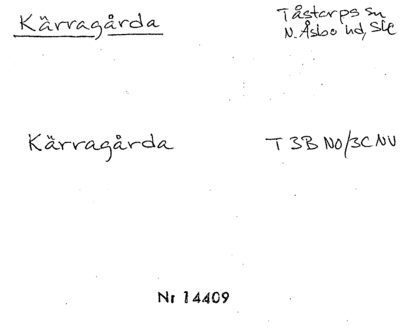 Kärragårda
Tåstarps sn
N. Åsbo hd, Slc
Kärragårda
T 3B NO/3C NV
Nr 14409